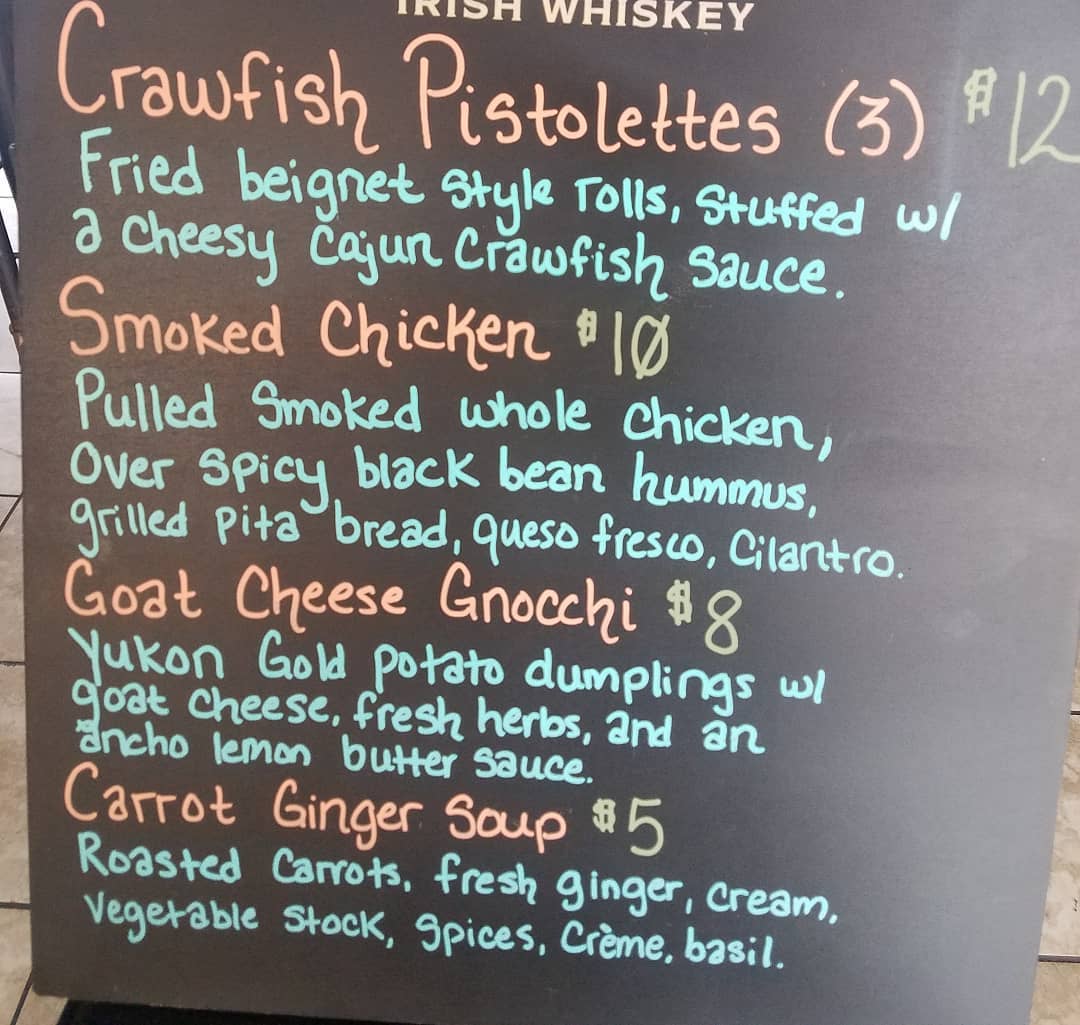 IRISH WHISKEY
Crawfish Pistolettes (3) $12
Fried beignet style rolls, stuffed w/
a cheesy Cajun Crawfish Sauce.
Smoked Chicken $10
Pulled Smoked whole chicken,
Over spicy black bean hummus,
grilled pita bread, queso fresco, Cilantro.
Goat Cheese Gnocchi $8
Yukon Gold potato dumplings w/
goat cheese, fresh herbs, and an
ancho lemon butter sauce.
Carrot Ginger Soup $5
Roasted Carrots, fresh ginger, cream,
Vegetable Stock, Spices, Crème, basil.